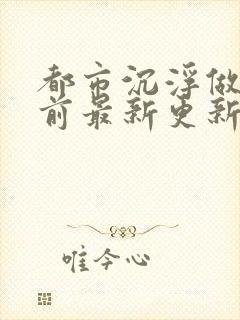 都市沉浮做
前最新更新
唯今心